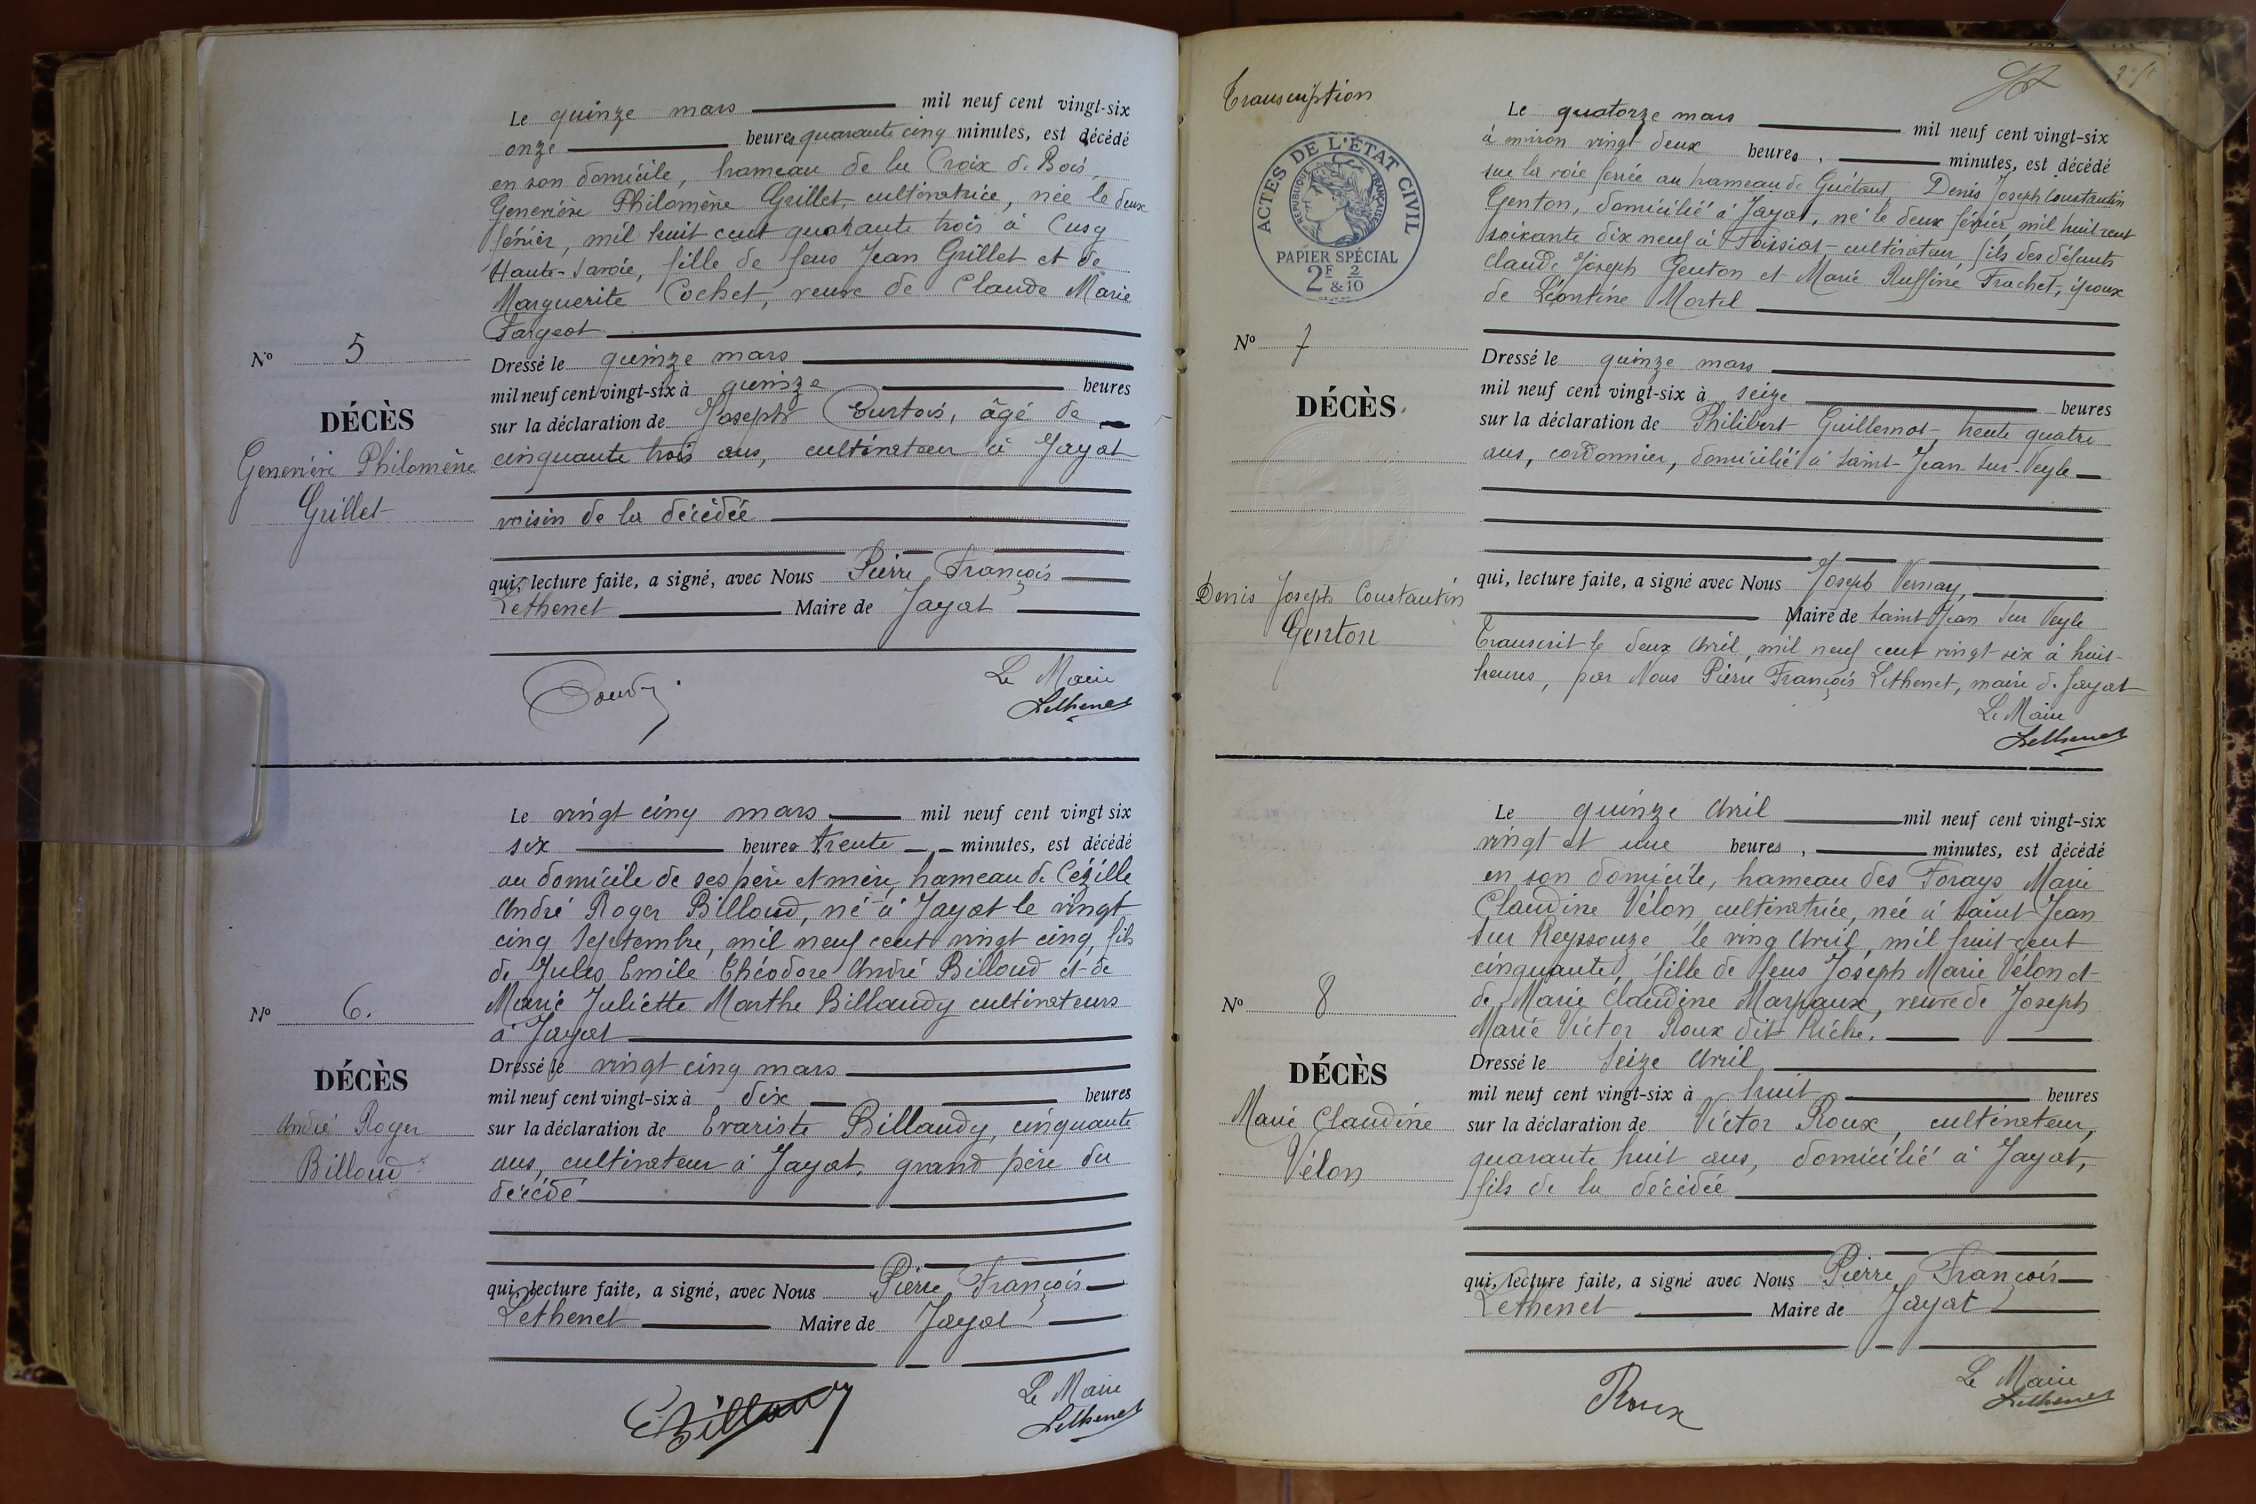 Le quinze mars mil neuf cent vingt-six
onze heures quarante cinq minutes, est décédé
en son domicile, hameau de la Croix de Bois,
Geneviève Philomène Grillet, cultivatrice, née le deux
février, mil huit cent quarante trois à Cusy
Haute-Savoie, fille de feus Jean Grillet et de
Marguerite Cochet, veuve de Claude Marie
Fargeot
N° 5
DÉCÈS
Geneviève Philomène
Grillet
Dressé le quinze mars
mil neuf cent vingt-six à quinze heures
sur la déclaration de Joseph Courtois, âgé de
cinquante trois ans, cultivateur à Jayat
voisin de la décédée
qui, lecture faite, a signé, avec Nous Pierre François
Lethenet Maire de Jayat
Le Maire
Lethenet
Le vingt cinq mars mil neuf cent vingt six
six heures trente minutes, est décédé
au domicile de ses père et mère, hameau de Cézille
André Roger Billoud, né à Jayat le vingt
cinq Septembre, mil neuf cent vingt cinq, fils
de Jules Emile Théodore André Billoud et de
Marie Juliette Marthe Billaudy cultivateurs
à Jayat
N° 6.
DÉCÈS
André Roger
Billoud
Dressé le vingt cinq mars
mil neuf cent vingt-six à dix heures
sur la déclaration de Evariste Billaudy, cinquante
ans, cultivateur à Jayat, grand père du
décédé
qui, lecture faite, a signé, avec Nous Pierre François
Lethenet Maire de Jayat
EBillaudy
Le Maire
Lethenet
Transcription
ACTES DE L'ÉTAT CIVIL
RÉPUBLIQUE FRANÇAISE
PAPIER SPÉCIAL
2F & 2/10
Le quatorze mars mil neuf cent vingt-six
à environ vingt deux heures, minutes, est décédé
sur la voie ferrée au hameau de Denis Joseph Constantin
Genton, domicilié à Jayat, né le deux février mil huit cent
soixante dix neuf à Foissiat cultivateur, fils des défunts
Claude Joseph Genton et Marie Ruffine Frachet, époux
de Léontine Mortel
N° 7
DÉCÈS
Denis Joseph Constantin
Genton
Dressé le quinze mars
mil neuf cent vingt-six à seize heures
sur la déclaration de Philibert Guillemot, trente quatre
ans, cordonnier, domicilié à Saint-Jean sur-Veyle
qui, lecture faite, a signé avec Nous Joseph Vernay,
Maire de Saint Jean sur Veyle
Transcrit le deux Avril, mil neuf cent vingt six à huit
heures, par Nous Pierre François Lethenet, maire de Jayat
Le Maire
Lethenet
Le quinze Avril mil neuf cent vingt-six
vingt et une heures, minutes, est décédé
en son domicile, hameau des Forays Marie
Claudine Vélon cultivatrice, née à Saint Jean
sur Reyssouze le vinq Avril, mil huit cent
cinquante, fille de feus Joseph Marie Vélon et
de Marie Claudine Marpaux, veuve de Joseph
Marie Victor Roux dit Riché.
N° 8
DÉCÈS
Marie Claudine
Vélon
Dressé le Seize Avril
mil neuf cent vingt-six à huit heures
sur la déclaration de Victor Roux, cultivateur,
quarante huit ans, domicilié à Jayat,
fils de la décédée
qui, lecture faite, a signé avec Nous Pierre François
Lethenet Maire de Jayat
Roux
Le Maire
Lethenet